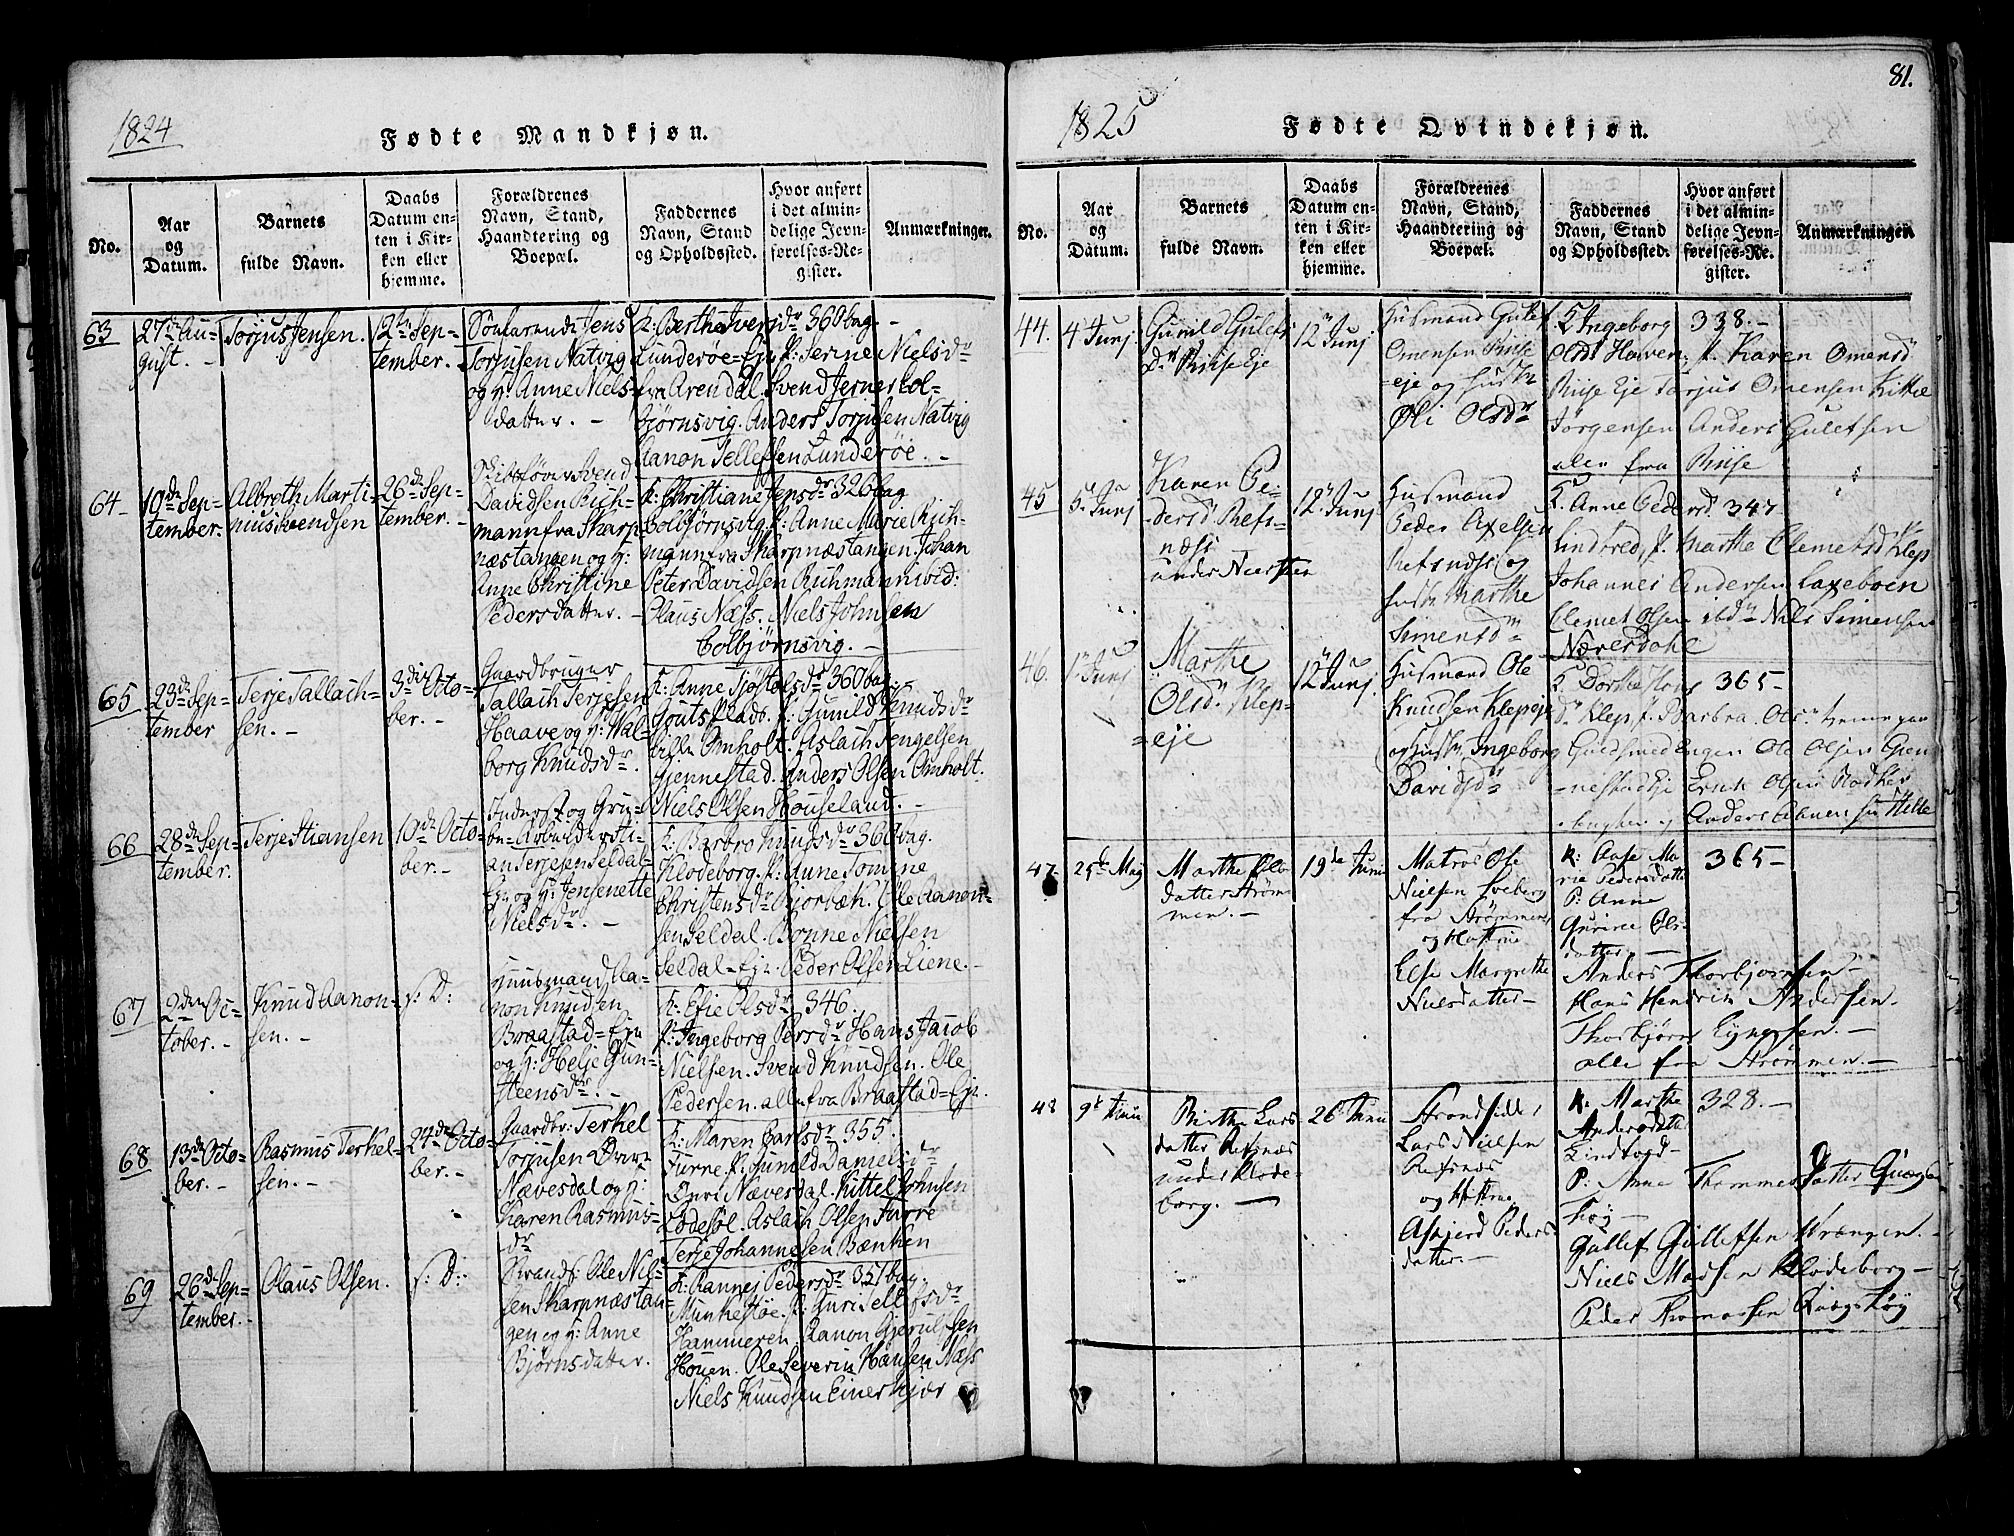 1824
Fødte Mandkjøn.
No.
Aar
og
Datum.
Barnets
fulde Navn.
Daabs
Datum en-
ten i Kir-
ken eller
hjemme.
Forældrenes
Navn, Stand,
Haandtering og
Boepæl.
Faddernes
Navn, Stand
og Opholdssted.
Hvor anført
i det almin-
delige Jevn-
førelses-Re-
gister.
Anmærkninger.
63
27de Au-
gust. -
Torjus Jensen.
12te Sep-
tember. -
Sønfarende Jens
Torjusen Natvig
og H: Anne Niels-
datter. -
K: Berthe Iversdr 360 bag. -
Lunderøe-Eje P: Serine Nielsdr
fra Arendal. Svend Jerner Col-
bjørnsvig. Anders Torjusen Natvig
Aanon Tellefsen Lunderøe. -
64
10de Sep-
tember.
Albreth Marti-
nus Svendsen
26de Sep-
tember. -
Svend
Davidsen Rich-
mann fra Skarp-
næstangen og H:
Anne Christine
Pedersdatter. -
K: Christiane Jensdr 326 bag
Colbjørnsvig. P: Anne Marie Rich-
mann fra Skarpnæstangen. Johan
Peter Davidsen Richmann ibid:
Claus Næss. Niels Johnsen
Colbjørnsvig. -
65
23de Sep-
tember
Terje Tallach-
sen. -
3die Octo-
ber. -
Gaardbruger
Tallach Terjesen
Haave og H: Wal-
borg Knudsdr.
K: Anne Sjøstolsdr 360 bag. -
Gouts Plads. P: Gunild Knudsdr
lille Omholt. Aslach Tengelsen
Gjennestad. Anders Olsen Omholt.
Niels Olsen Houseland. -
66
28de Sep-
tember.
Terje Stiansen
10de Octo-
ber. -
Inderst og Gru-
be-Arbeider Sti-
an Terjesen Seldal-
Eje og H: Jensenette
Nielsdr. -
K: Barbro Knudsdr 360 bag.
Klodeborg. P: Anne Tomine
Christensdr Bjorbæk. Ole Aanon-
sen Seldal. Bonne Nielsen
Seldal-Eje. Peder Olsen Liene. -
67
2den Oc-
tober. -
Knud Aanon-
sen. -
s: D:
Huusmand Aa-
non Knudsen
Braastad-Eje
og H: Helje Gun-
steensdr. -
K: Efie Olsdr 346.
P: Ingeborg Persdr Hans Jacob
Nielsen. Svend Knudsen. Ole
Pedersen. alle fra Braastad-Eje.
68
13de Octo-
ber. -
Rasmus Terkel-
sen. -
24de Octo-
ber. -
Gaardbr: Terkel
Torjusen Øvre
Nævesdal og H:
Karen Rasmus-
dr
K: Maren Carlsdr 355.
Furre. P: Gunild Danielsdr
Øvre Nævesdal. Kittel Johnsen
Lodesøl. Aslach Olsen Furre
Terje Johannesen Bænken
69
26de Sep-
tember. -
Claus Olsen.
s: D:
Strands: Ole Niel-
sen Skarpnæstan-
gen og H: Anne
Bjørnsdatter.
K: Rannej Pedersdr 351 bag.
Munkestøe. P: Guri Sellefsdr
Hammeren. Aanon Gjerulfsen
Houen. Ole Severin Hansen Næss
Niels Knudsen Einerkjær
81.
1825
Fødte Qvindekjøn.
No.
Aar
og
Datum.
Barnets
fulde Navn.
Daabs
Datum en-
ten i Kir-
ken eller
hjemme.
Forældrenes
Navn, Stand,
Haandtering og
Boepæl.
Faddernes
Navn, Stand
og Opholdssted.
Hvor anført
i det almin-
delige Jevn-
førelses-Re-
gister.
Anmærkninger
44.
4 Junj.
Gunild Gulefs
dr Riiseeje
12 Junj
Husmand Gulef
Omensen Riise
=eje og hust
Øli Olsdr
K Ingeborg 338. -
Olsdr Haven. P. Karen Omensd
Riise Eje Torjus Omensen Kittel
Jørgensen Anders Gulefsen
alle fra Riise
45
5 Junj
Karen Pe-
dersdr Refs-
næss
under Niersteen
12 Junj
Husmand
Peder Axelsen
Refsnæss og
hustr Marthe
Simensdr
K. Anne Pedersd 347
Lindtved, P. Marthe Clemetsd Klep
Johannes Andersen Laxeboen
Clemet Olsen ibd Nils Simensen
Næversdahl
46.
1 Junj
Marthe
Olsdr Klep-
=eje
12 Junj
Husmand Ole
Knudsen Klepeje
og hust Ingeborg
Davidsdr
K Dorthe 365 -
dr Klep P. Barbra Olsdr
Guldsmedengen Ole Olsen Gjen-
=nestadeje Erick Olsen
Anders
47
25de Maj
Marthe Ols-
datter Strøm-
men. -
19de Junii
Matros Ole
Nielsen Sveberg
fra Strømmen
og Hustrue
Else Margrethe
Nielsdatter -
K: Aase Ma- 365 -
rie Pedersdatter
P: Anne
Gurine Ols-
datter -
Anders Thorbjørnsen -
Hans Hendrik Andersen.
Thorbjørn
alle fra Strømmen. -
48
9de Junii
Birthe Lars-
datter Refsnæs
under Klode-
borg. -
26 Junii
Strandsidder
Lars Nielsen
Refsnæs
og Hustrue
Asbjerd Peders-
datter. -
K: Marthe 328. -
Andersdatter
Lindtved -
P. Anne Thommesdatter Qvægs-
høg -
Gullef Gullefsen Wrængen. -
Niels Madsen Klodeborg -
Peder Thomassen Qvægshøg